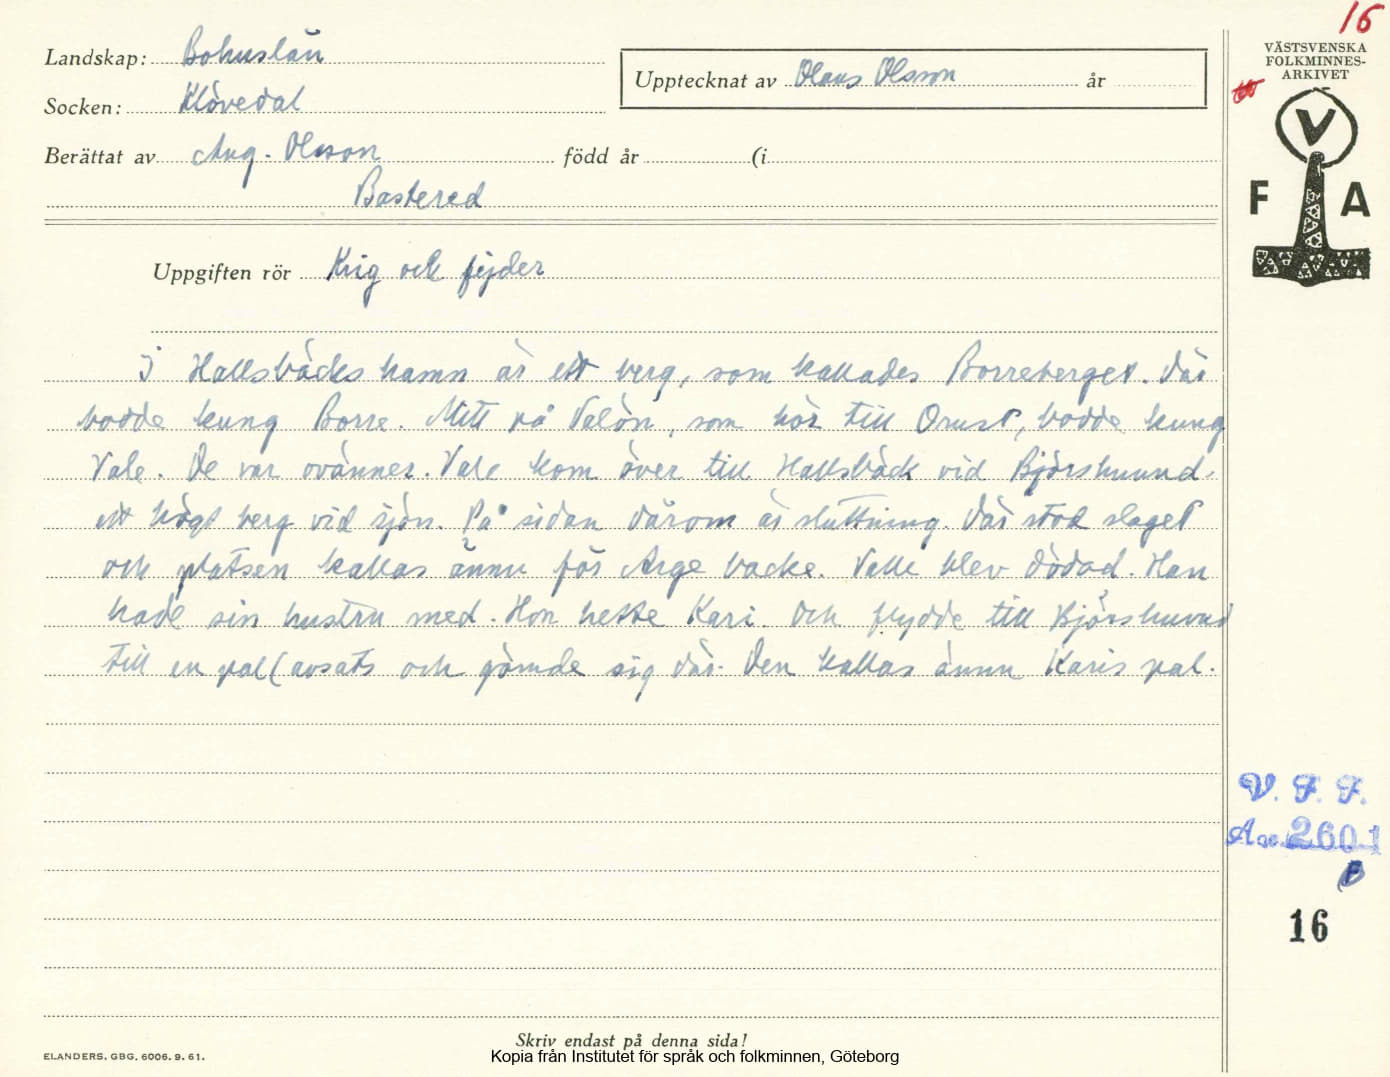 16
Landskap: Bohuslän
Socken: Klövedal
Upptecknat av Olaus Olsson år
Berättat av Aug. Olsson född år (i
Bastered
VÄSTSVENSKA
FOLKMINNES-
ARKIVET
V
F A
Uppgiften rör Krig och fejder
I Hallsbäcks hamn är ett berg, som kallades Borreberget. Där
bodde kung Borre. Mitt på Valön, som hör till Orust, bodde kung
Vale. De var ovänner. Vale kom över till Hallsbäck vid Björshuvud,
ett högt berg vid sjön. På sidan därom är sluttning. Där stod slaget
och platsen kallas ännu för Arge backe. Valle blev dödad. Han
hade sin hustru med. Hon hette Kari. Och flydde till Björshuvud
till en pal (avsats och gömde sig där. Den kallas ännu Karis pal.
V. F. F.
Acc. 2601
16
Skriv endast på denna sida!
ELANDERS, GBG, 6006. 9. 61.
Kopia från Institutet för språk och folkminnen, Göteborg